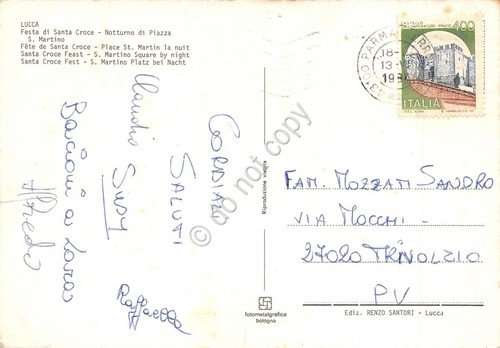 LUCCA
Festa di Santa Croce - Notturno di Piazza
S. Martino
Fête de Santa Croce - Place St. Martin la nuit
Santa Croce Feast - S. Martino Square by night
Santa Croce Fest - S. Martino Platz bei Nacht
CORDIALI
SALUTI
Claudio
Susy
Bacioni a Lara
Alfredo
Raffaella
Riproduzione vietata
fotometalgrafica
bologna
CASTELLO
DELL'IMPERATORE - PRATO
400
ITALIA
PARMA
18-
13-
FAM. MOZZATI SANDRO
VIA MOCCHI -
27020 TRIVOLZIO
PV
Ediz. RENZO SANTORI - Lucca
do not copy